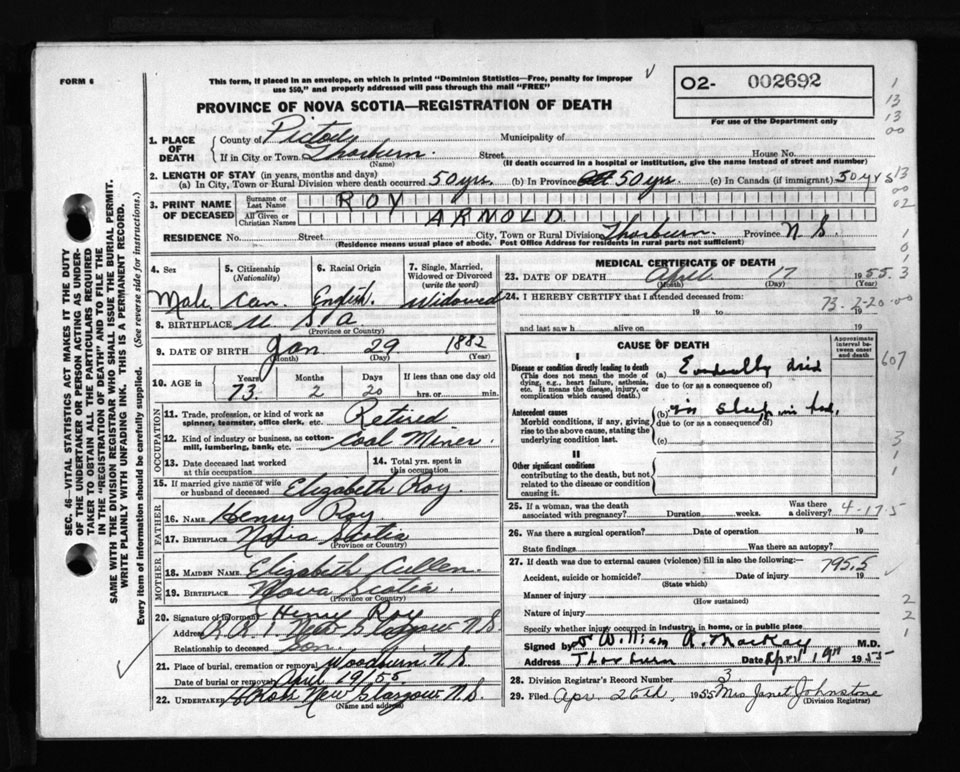 FORM 6
This form, if placed in an envelope, on which is printed "Dominion Statistics—Free, penalty for improper
use $50," and properly addressed will pass through the mail "FREE"
O2- 002692
For use of the Department only
PROVINCE OF NOVA SCOTIA—REGISTRATION OF DEATH
1. PLACE OF DEATH
County of Pictou Municipality of
If in City or Town Thorburn (Name) Street House No.
(If death occurred in a hospital or institution, give the name instead of street and number)
2. LENGTH OF STAY (in years, months and days)
(a) In City, Town or Rural Division where death occurred 50 yrs. (b) In Province 50 yrs. (c) In Canada (if immigrant) 50 yrs
3. PRINT NAME OF DECEASED
Surname or Last Name ROY
All Given or Christian Names ARNOLD
RESIDENCE No. Street City, Town or Rural Division Thorburn. Province N S.
(Residence means usual place of abode. Post Office Address for residents in rural parts not sufficient)
4. Sex Male
5. Citizenship (Nationality) Can.
6. Racial Origin English.
7. Single, Married, Widowed or Divorced (write the word) Widowed
8. BIRTHPLACE U S A
(Province or Country)
9. DATE OF BIRTH Jan 29 1882
(Month) (Day) (Year)
10. AGE in Years 73. Months 2 Days 20 If less than one day hrs. or min.
OCCUPATION
11. Trade, profession, or kind of work as spinner, teamster, office clerk, etc. Retired
12. Kind of industry or business, as cotton-mill, lumbering, bank, etc. Coal Miner.
13. Date deceased last worked at this occupation
14. Total yrs. spent in this occupation
15. If married give name of wife or husband of deceased Elizabeth Roy.
FATHER
16. NAME Henry Roy
17. BIRTHPLACE Nova Scotia
(Province or Country)
MOTHER
18. MAIDEN NAME Elizabeth Cullen.
19. BIRTHPLACE Nova Scotia
(Province or Country)
20. Signature of informant Henry Roy
Address R.R. 1. New Glasgow N.S.
Relationship to deceased Son.
21. Place of burial, cremation or removal Woodburn, N.S.
Date of burial or removal April 19/55
22. UNDERTAKER New Glasgow N.S.
(Name and address)
MEDICAL CERTIFICATE OF DEATH
23. DATE OF DEATH April 17 1955.
(Month) (Day) (Year)
24. I HEREBY CERTIFY that I attended deceased from:
19 to 19
73-2-20-00
and last saw h alive on 19
CAUSE OF DEATH
Approximate interval between onset and death
I
Disease or condition directly leading to death
(This does not mean the mode of dying, e.g., heart failure, asthenia, etc. It means the disease, injury, or complication which caused death.)
(a) died
due to (or as a consequence of)
Antecedent causes
Morbid conditions, if any, giving rise to the above cause, stating the underlying condition last.
(b) in sleep in bed.
due to (or as a consequence of)
(c)
II
Other significant conditions
contributing to the death, but not related to the disease or condition causing it.
25. If a woman, was the death associated with pregnancy? Duration weeks. Was there a delivery?
4-17-5
26. Was there a surgical operation? Date of operation 19
State findings Was there an autopsy?
27. If death was due to external causes (violence) fill in also the following:—
795.5
Accident, suicide or homicide? Date of injury 19
(State which)
Manner of injury
(How sustained)
Nature of injury
Specify whether injury occurred in industry, in home, or in public place
Signed by William R. MacKay M.D.
Address Thorburn Date April 19th 1955
28. Division Registrar's Record Number 3
29. Filed Apr. 26th, 1955 Mrs Janet Johnstone
(Division Registrar)
SEC. 46—VITAL STATISTICS ACT MAKES IT THE DUTY
OF THE UNDERTAKER OR PERSON ACTING AS UNDERTAKER TO OBTAIN ALL THE PARTICULARS REQUIRED
IN THE "REGISTRATION OF DEATH" AND TO FILE THE
SAME WITH THE DIVISION REGISTRAR WHO SHALL ISSUE THE BURIAL PERMIT.
WRITE PLAINLY WITH UNFADING INK. THIS IS A PERMANENT RECORD.
Every item of information should be carefully supplied. (See reverse side for instructions.)
1
13
13
00
13
00
02
607
2
2
1